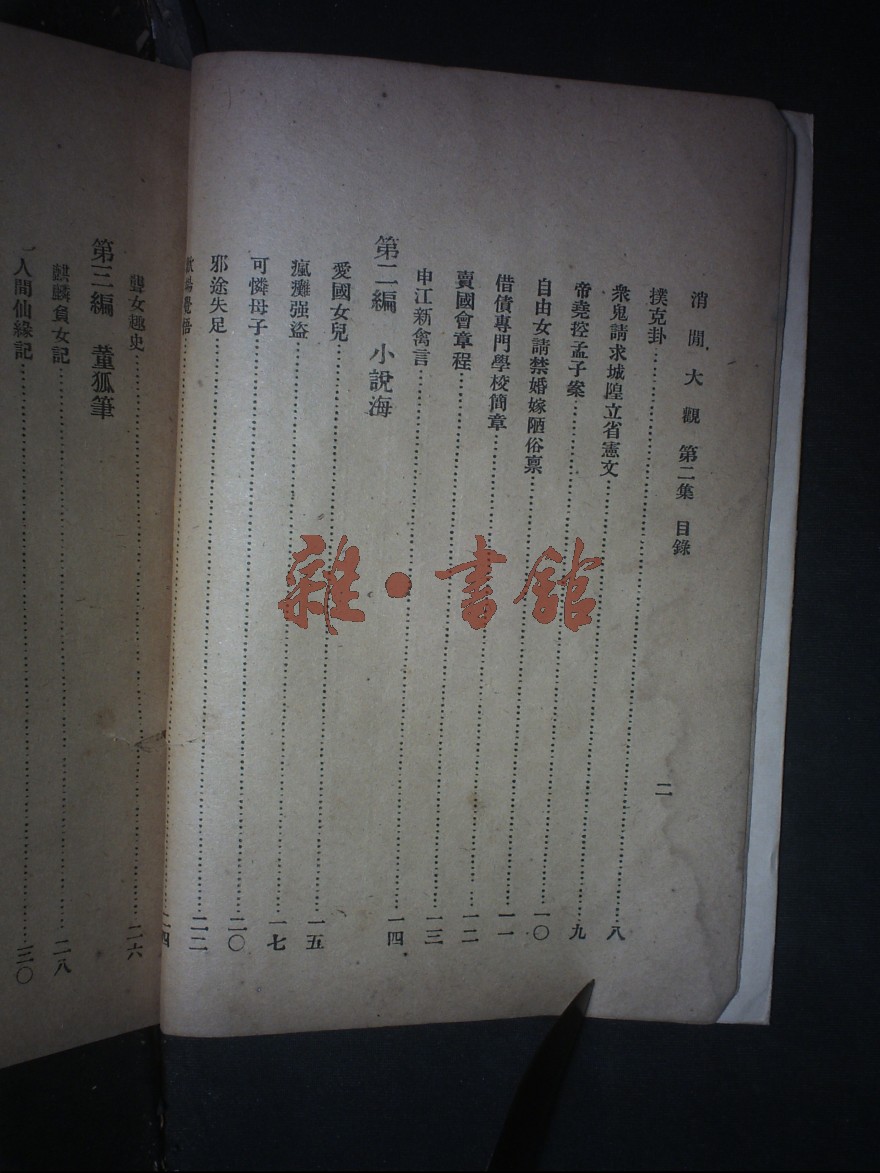 消閒大觀 第二集 目錄 二
撲克卦……八
衆鬼請求城隍立省憲文……九
帝堯控孟子案……一〇
自由女請禁婚嫁陋俗禀……一一
借債專門學校簡章……一二
賣國會章程……一三
申江新禽言……一四
第二編 小說海
愛國女兒……一五
瘋癱强盜……一七
可憐母子……二〇
邪途失足……二二
場覺悟……二四
聾女趣史……二六
第三編 董狐筆
麒麟負女記……二八
人間仙緣記……三〇
雜·書館